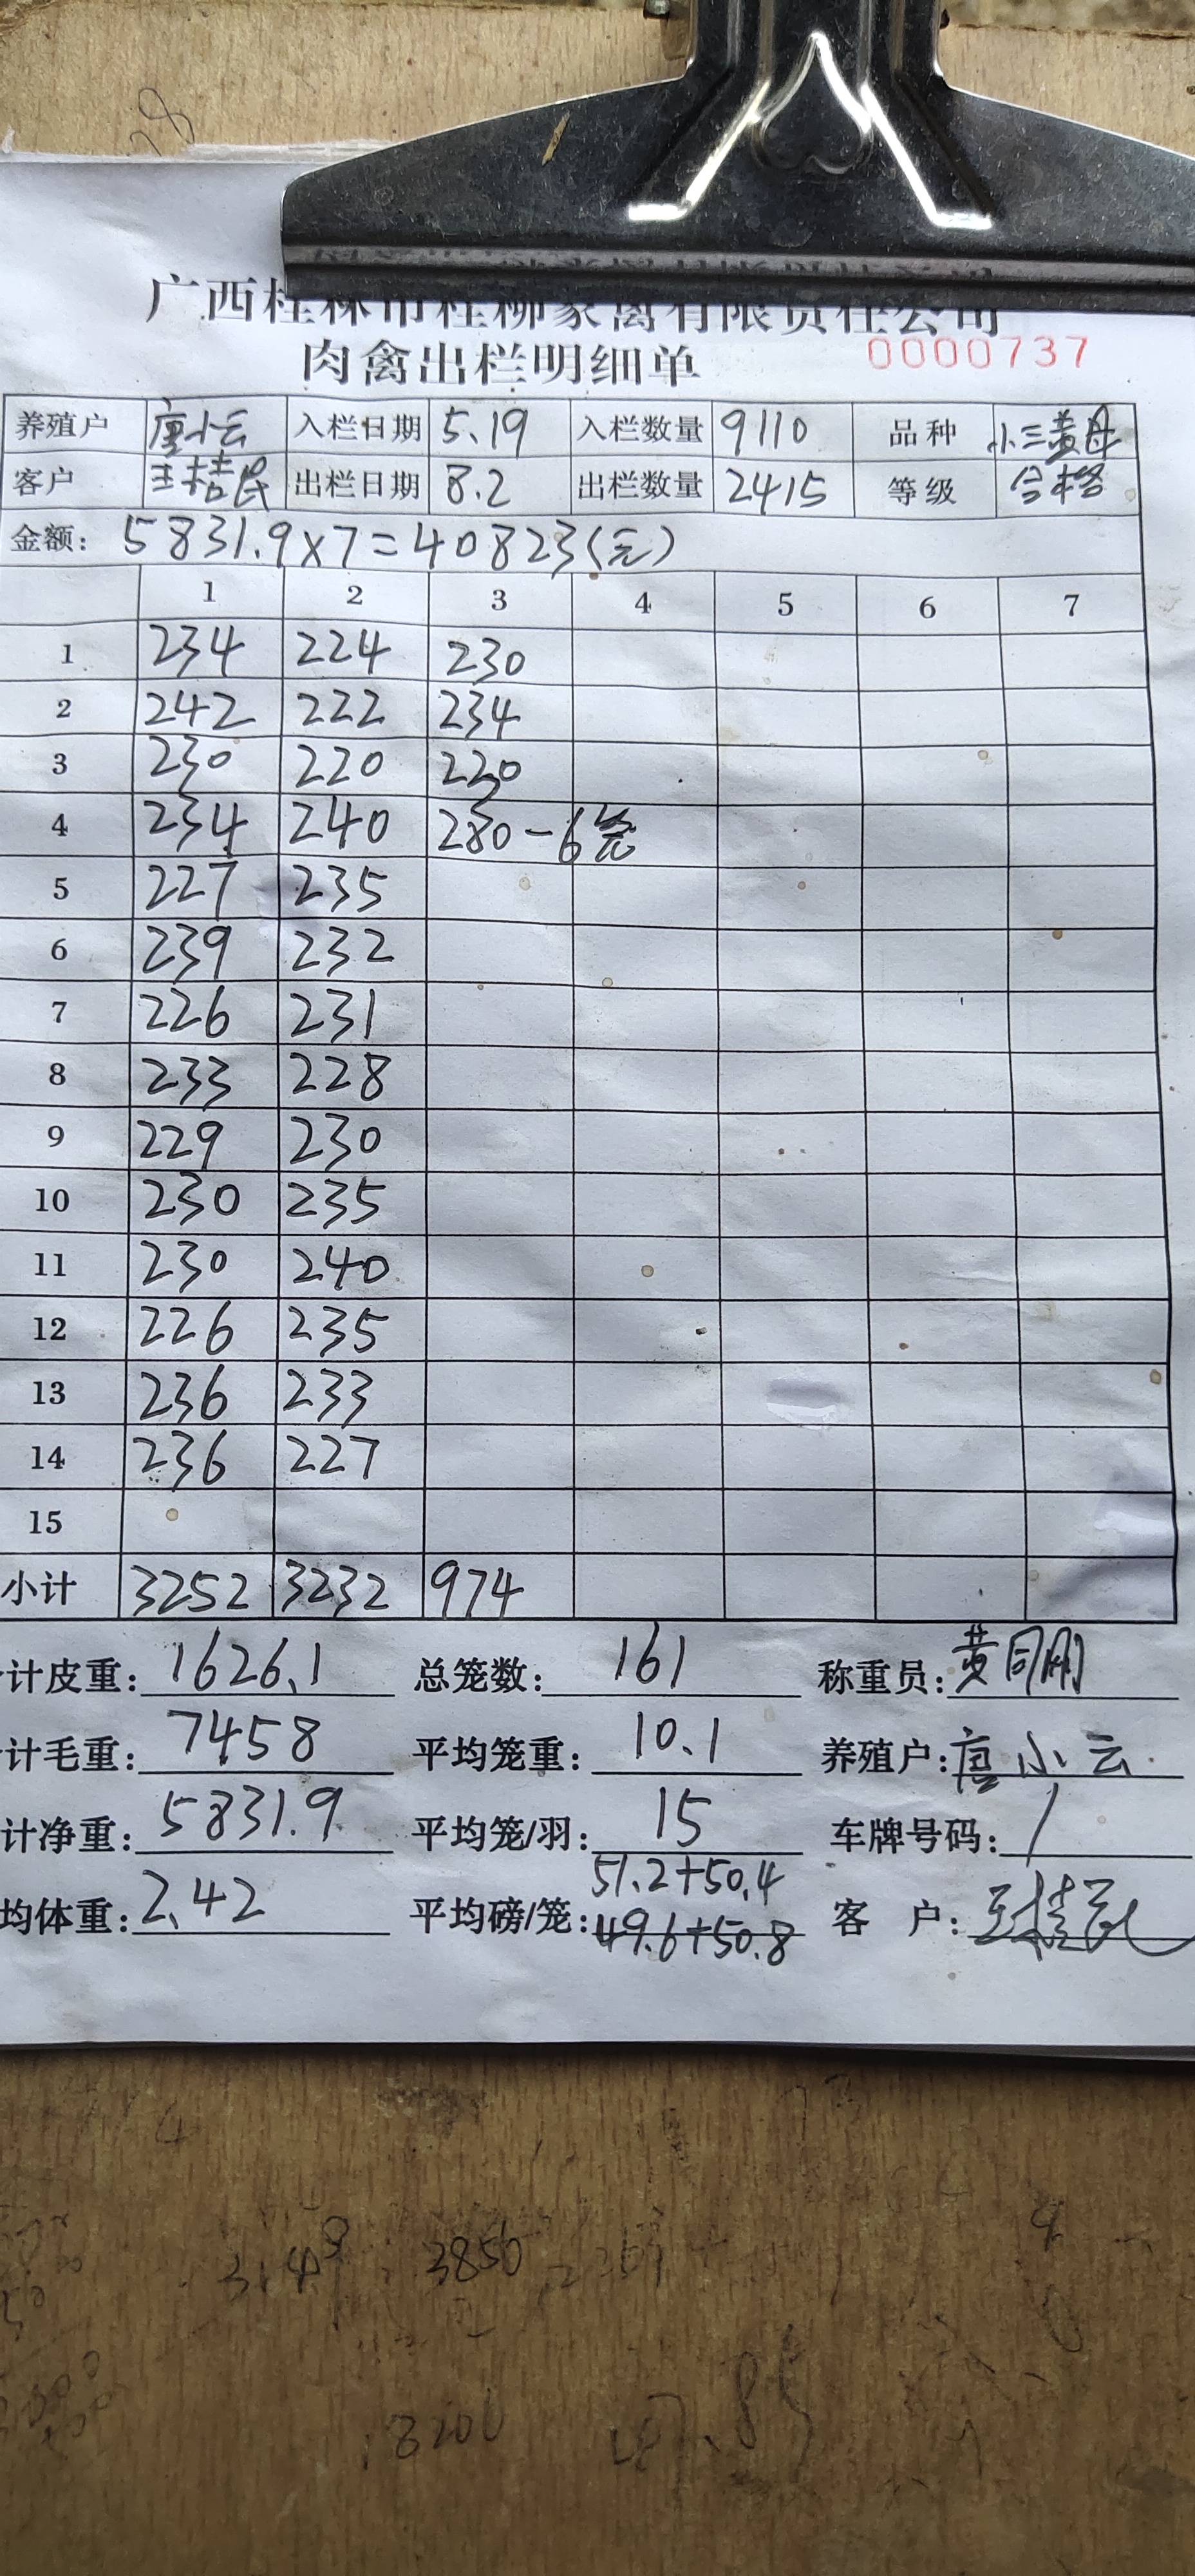 广西桂林市桂柳家禽有限责任公司
肉禽出栏明细单 0000737
养殖户 唐小云 入栏日期 5.19 入栏数量 9110 品种 小三黄母
客户 王桂民 出栏日期 8.2 出栏数量 2415 等级 合格
金额: 5831.9×7=40823(元)
1 2 3 4 5 6 7
1 234 224 230
2 242 222 234
3 230 220 230
4 234 240 280-6笼
5 227 235
6 239 232
7 226 231
8 233 228
9 229 230
10 230 235
11 230 240
12 226 235
13 236 233
14 236 227
15
小计 3252 3232 974
计皮重: 1626.1 总笼数: 161 称重员: 黄同刚
计毛重: 7458 平均笼重: 10.1 养殖户: 唐小云
计净重: 5831.9 平均笼/羽: 15 车牌号码: /
51.2+50.4
均体重: 2.42 平均磅/笼: 49.6+50.8 客 户: 王桂民
3850